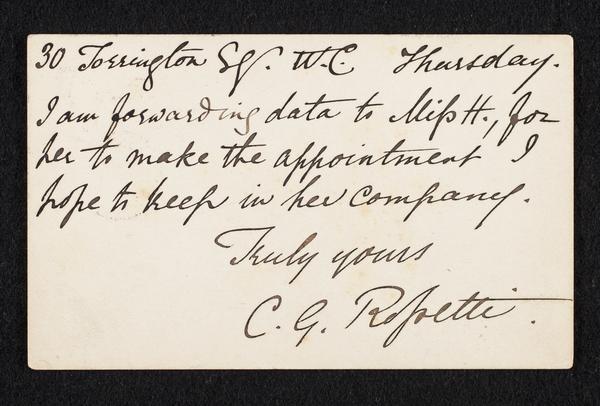 30 Torrington Sq. W.C. Thursday.
I am forwarding data to Miſs H., for
her to make the appointment I
hope to keep in her company.
Truly yours
C. G. Roſsetti.